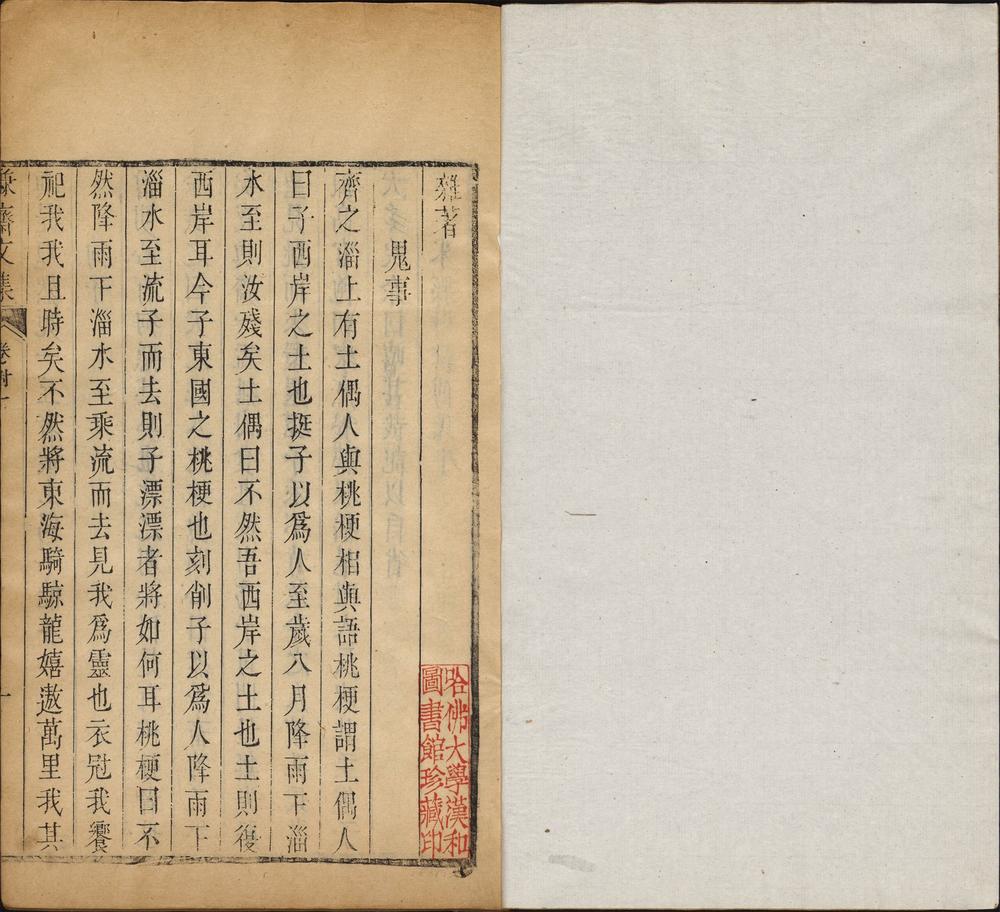 雜著
鬼事
齊之淄上有土偶人與桃梗相與語桃梗謂土偶人
曰子西岸之土也挻子以爲人至歲八月降雨下淄
水至則汝殘矣土偶曰不然吾西岸之土也土則復
西岸耳今子東國之桃梗也刻削子以爲人降雨下
淄水至流子而去則子漂漂者將如何耳桃梗曰不
然降雨下淄水至乘流而去見我爲靈也衣冠我饗
祀我我且時矣不然將東海騎鯨龍嬉遨萬里我其
謙齋文集 卷附一 一
哈佛大學漢和
圖書館珍藏印